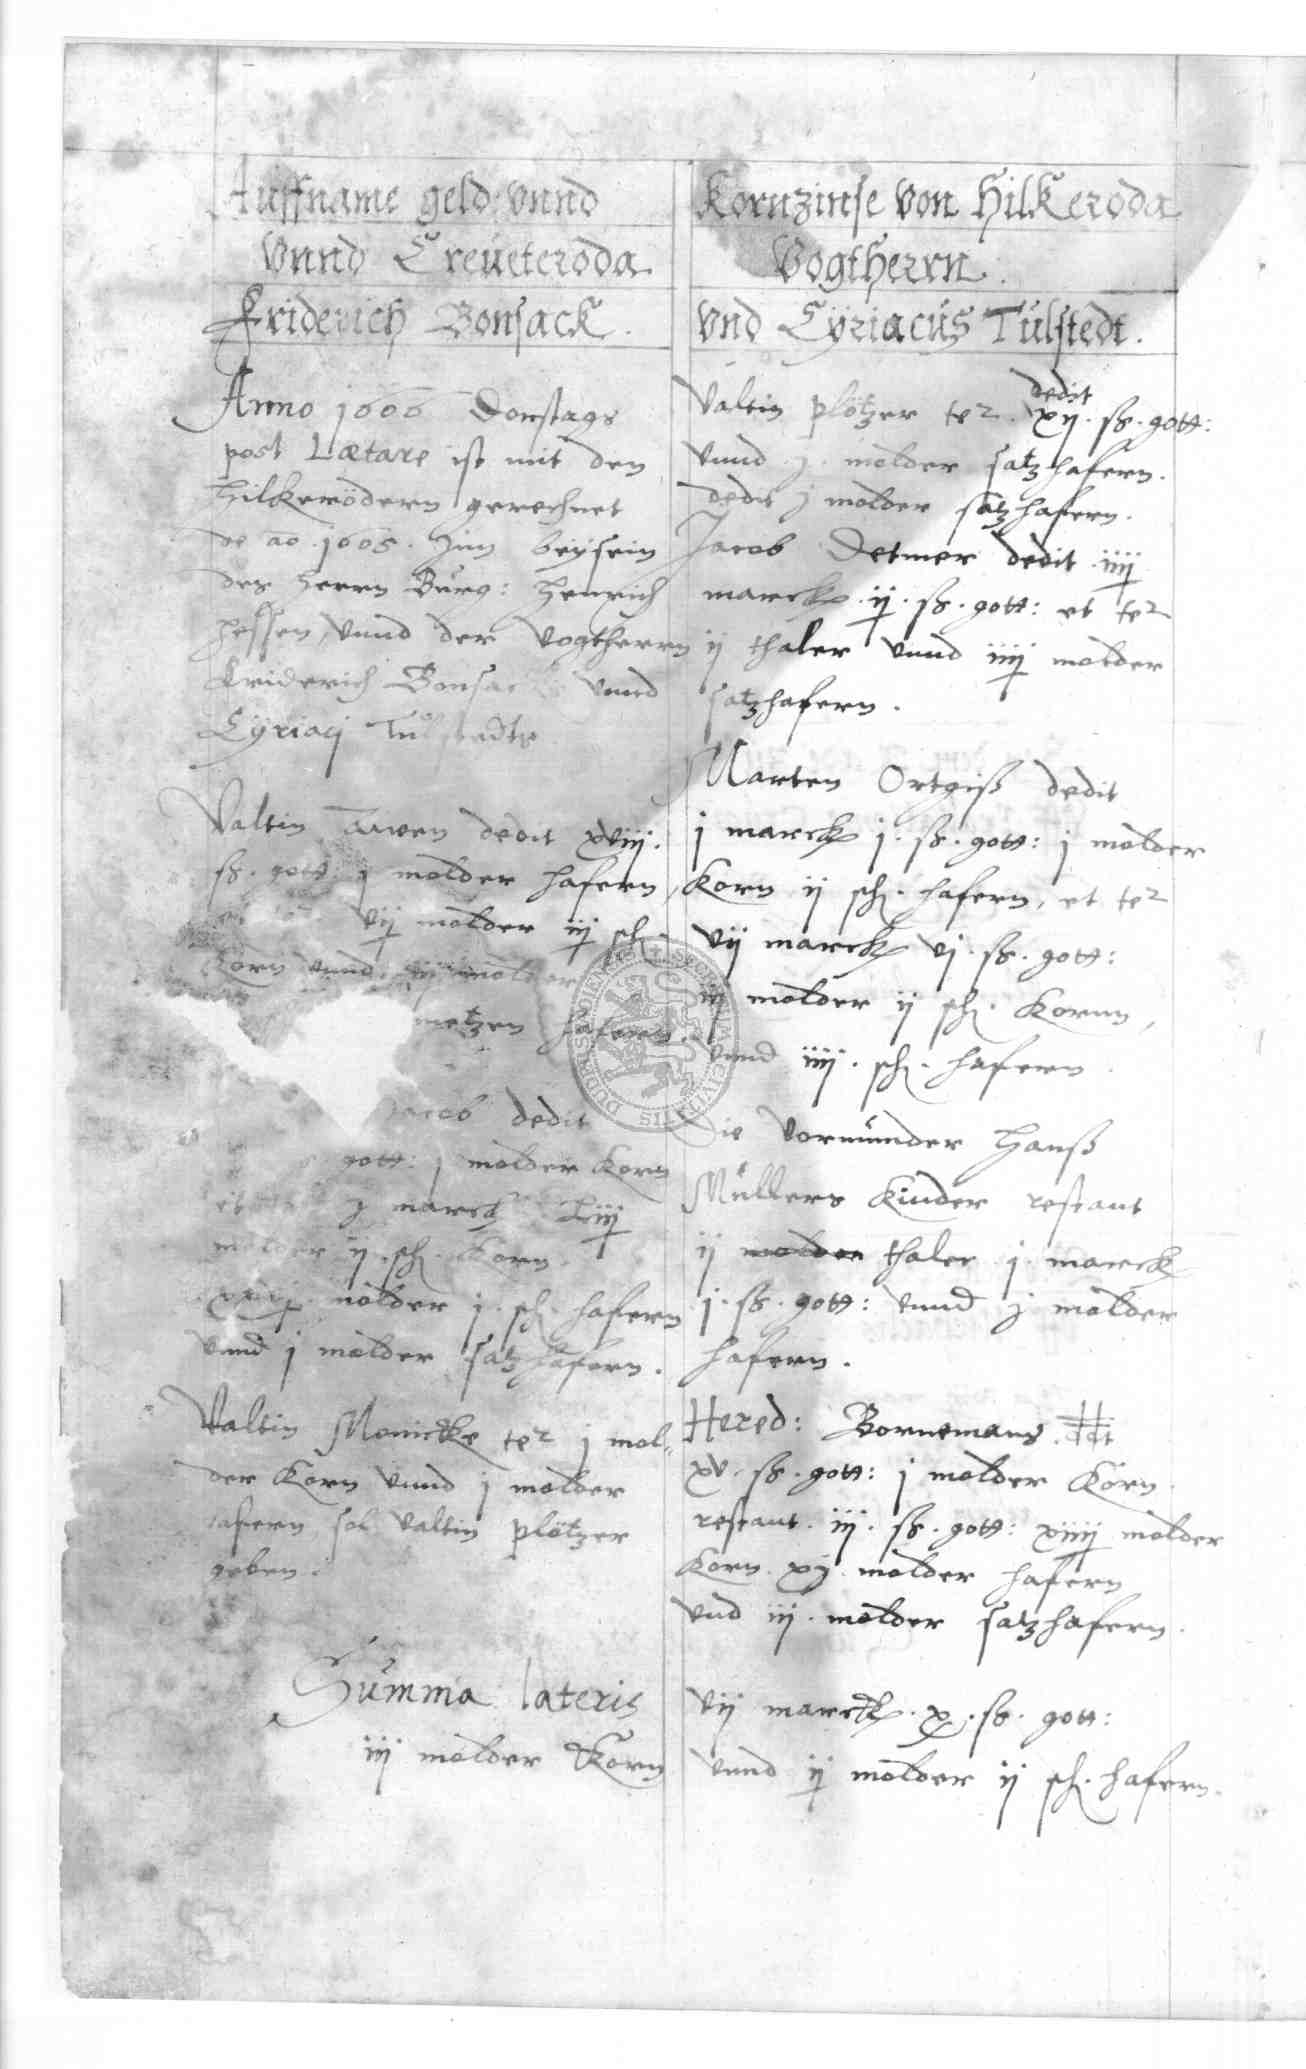 Auffname geld vnnd
Vnnd Creueteroda
Friderich Bonsack.
Anno 1606 Donstags
post Lætare ist mit den
Hilkerödern gerechnet
de ao 1605. Jm beÿsein
des herrn Burg: Henrich
Hessen, vnnd der Vogtherrn
Friderich Bonsacks vnnd
Cÿriaci Tulstedts
Valtin dedit xviij.
ß. gott: j molder hafern,
vij molder iij sch.
Korn vnnd molder
metzen hafern.
Jacob dedit
gott: j molder Korn
j marck
molder ij. sch. Korn.
molder j. sch. hafern
vnnd j molder satzhafern.
Valtin Monicke te2 j mol-
der Korn vnnd j molder
hafern sol Valtin plötzer
geben.
Summa lateris
iij molder Korn
Kornzinse von Hilkeroda
Vogtherrn.
vnd Cÿriacus Tulstedt.
dedit
Valtin plötzer te2. xij. ß. gott:
vnnd j. molder satzhafern.
dedit j molder satzhafern.
Jacob Detmer dedit iiij
marck. ij. ß. gott: et te2
ij thaler vnnd iiij molder
satzhafern.
Marten Ortgiß dedit
j marck j. ß. gott: j molder
Korn ij sch. hafern, et te2
vij marck vj. ß. gott:
iij molder ij sch. Kornn,
vnnd iiij. sch. hafern.
Die Vormünder Hanß
Müllers Kinder restant
ij molder thaler j. marck
j. ß. gott: vnnd j molder
hafern.
Hered: Bornemans dt
xv. ß. gott: j molder Korn.
restant. iij. ß. gott: xiiij molder
Korn. xj molder hafern
vnd iij. molder satzhafern.
vij marck. x. ß. gott:
vnnd ij molder ij sch. hafern.